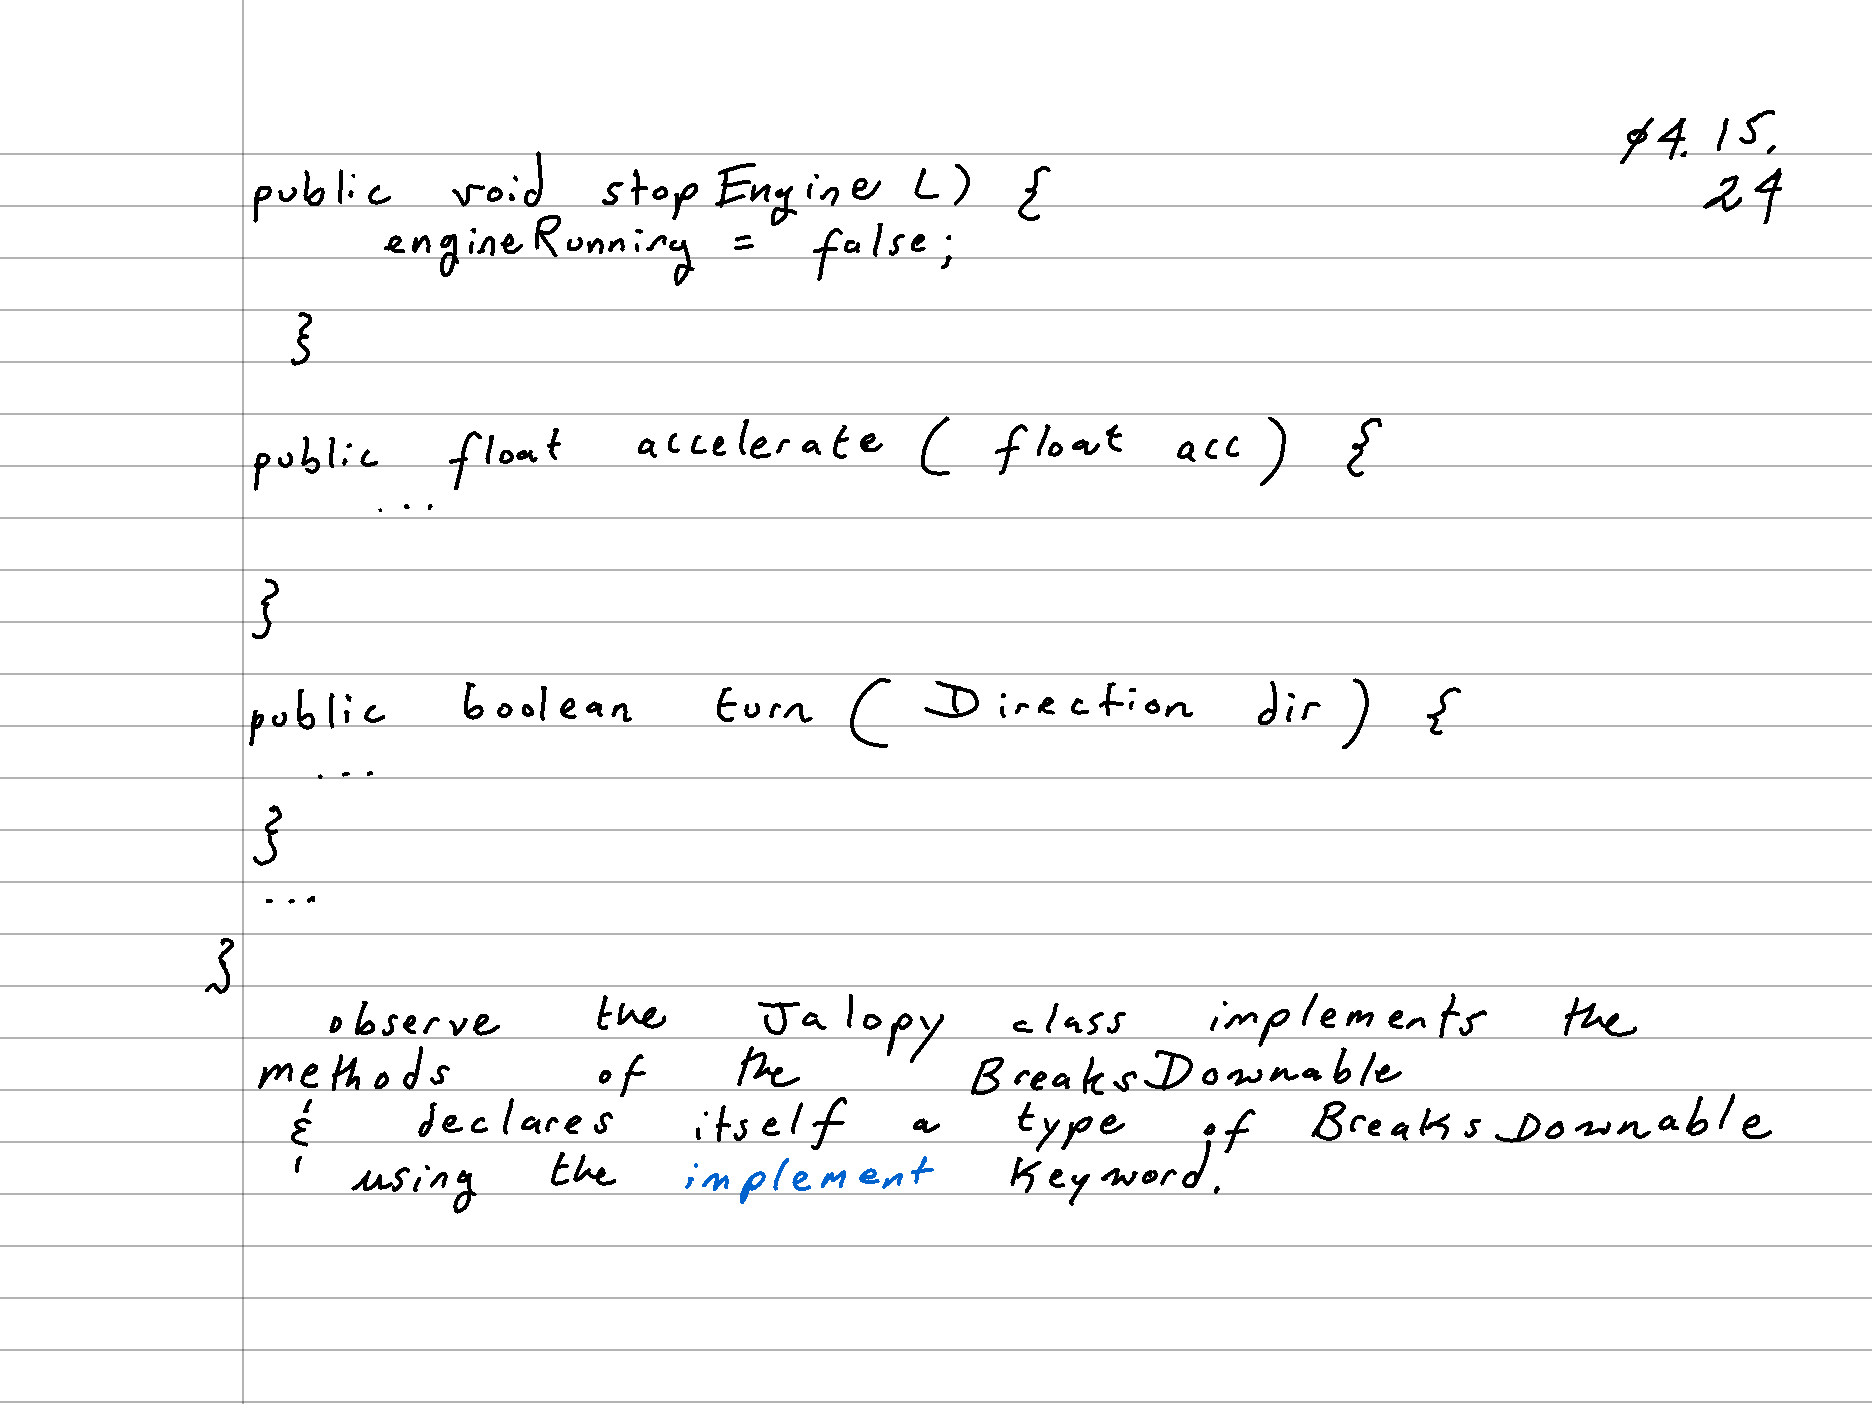 04.15.
24
public void stopEngine () {
engineRunning = false;
}
public float accelerate ( float acc ) {
...
}
public boolean turn ( Direction dir ) {
...
}
...
}
observe the Jalopy class implements the
methods of the BreaksDownable
& declares itself a type of BreaksDownable
using the implement keyword.